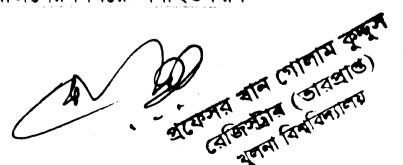 প্রফেসর খান গোলাম কুদ্দুস
রেজিস্ট্রার (ভারপ্রাপ্ত)
খুলনা বিশ্ববিদ্যালয়